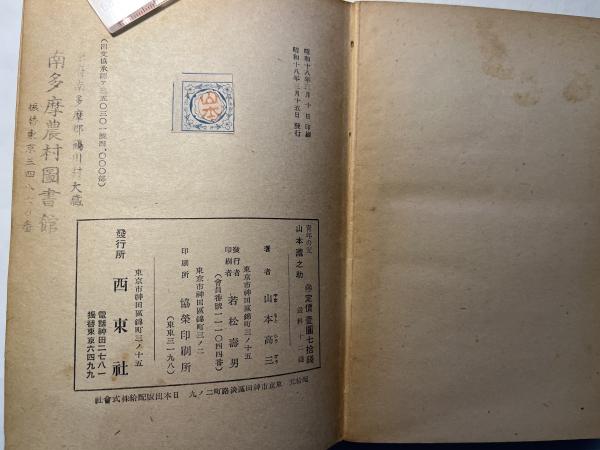 昭和十八年三月十日印刷
昭和十八年三月十五日發行
山本
(出文協承認ケ三五〇三〇一號 四、〇〇〇部)
南多摩郡鶴川村大藏
南多摩農村圖書館
振替東京三四八
青年の父
山本瀧之助
定價壹圓七拾錢
送料十二錢
著者 山本高三
東京市神田區錦町三ノ十五
發行者
印刷者 若松壽男
(會員番號一一一〇四四番)
東京市神田區錦町三ノ二
印刷所 協榮印刷所
(東東三一九八)
東京市神田區錦町三ノ十五
發行所 西東社
電話神田二七八一
振替東京六四九九
配給元 東京市神田區淡路町二ノ九 日本出版配給株式會社